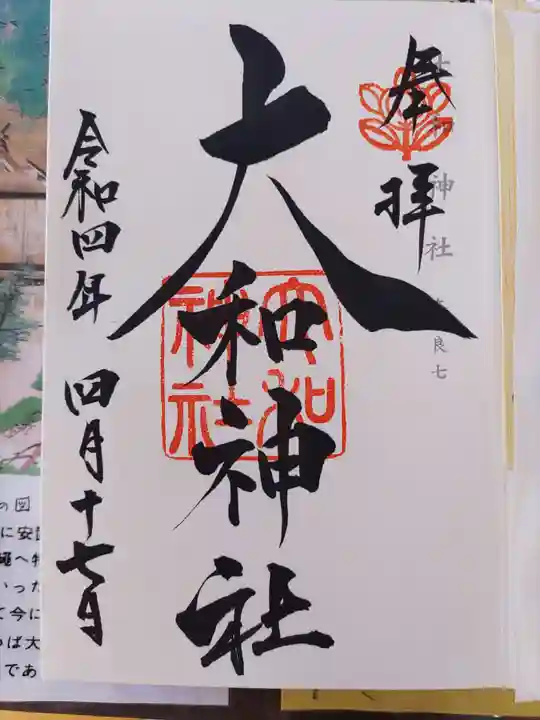 奉拝
大和神社
令和四年 四月十七日
大和神社
神社
良七
の図
に安
縄へ
いった
て今に
つば大
であ